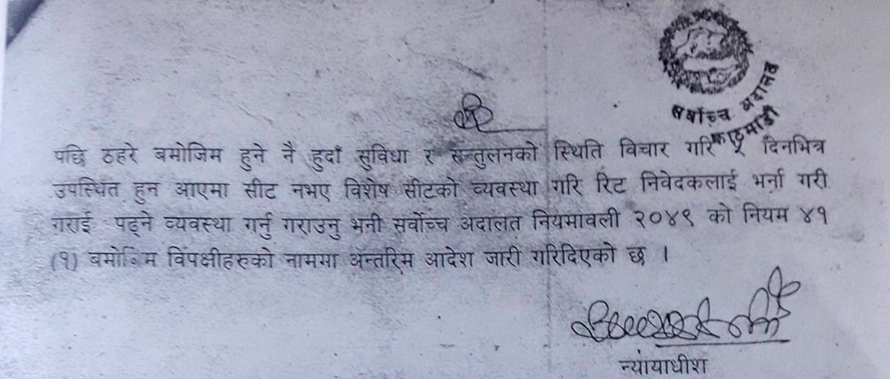 सर्वोच्च अदालत
काठमाडौं
पछि ठहरे बमोजिम हुने नै हुदाँ सुविधा र सन्तुलनको स्थिति विचार गरि दिनभित्र
उपस्थित हुन आएमा सीट नभए विशेष सीटको व्यवस्था गरि रिट निवेदकलाई भर्ना गरी
गराई पढ्ने व्यवस्था गर्नु गराउनु भनी सर्वोच्च अदालत नियमावली २०४९ को नियम ४१
(१) बमोजिम विपक्षीहरुको नाममा अन्तरिम आदेश जारी गरिदिएको छ ।
न्यायाधीश